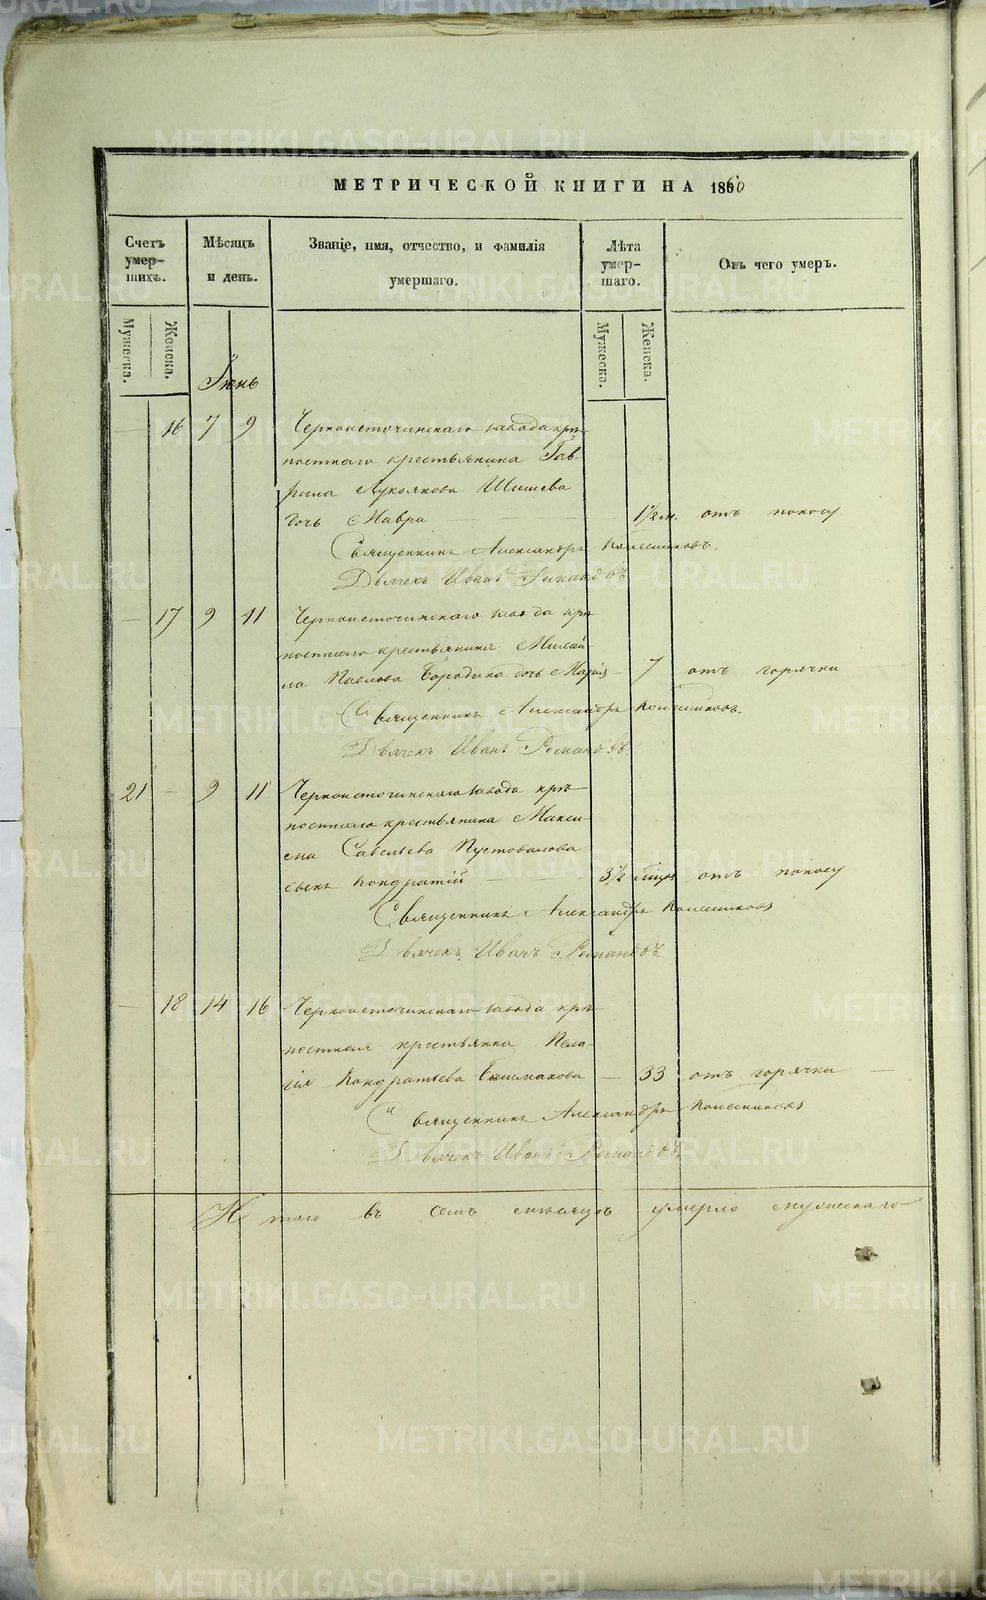 МЕТРИЧЕСКОЙ КНИГИ НА 1860
Счетъ умер-шихъ.
Мѣсяцъ и день.
Званіе, имя, отчество, и фамилія умершаго.
Лѣта умер-шаго.
Отъ чего умеръ.
Мужеска.
Женска.
Мужеска.
Женска.
Іюнь
— 16 7 9 Черноисточинскаго завода крѣ-
постнаго крестьянина Гав-
рила Лукоянова Шишева
дочь Мавра — — 1½ м. отъ поносу
Священникъ Александръ Колесниковъ.
Дьячекъ Иванъ
— 17 9 11 Черноисточинскаго завода крѣ-
постнаго крестьянина Михаи-
ла Павлова Бородина дочь Марія — 7 отъ горячки
Священникъ Александръ Колесниковъ.
Дьячекъ Иванъ
21 — 9 11 Черноисточинскаго завода крѣ-
постнаго крестьянина Макси-
ма Савельева Пустовалова
сынъ Кондратій — — 3½ отъ поносу
Священникъ Александръ Колесниковъ
Дьячекъ Иванъ
— 18 14 16 Черноисточинскаго завода крѣ-
постная крестьянка Пела-
гія Кондратьева Башмакова — 33 отъ горячки —
Священникъ Александръ Колесниковъ
Дьячекъ Иванъ
Итого въ семъ мѣсяцѣ умерло мужескаго
METRIKI.GASO-URAL.RU